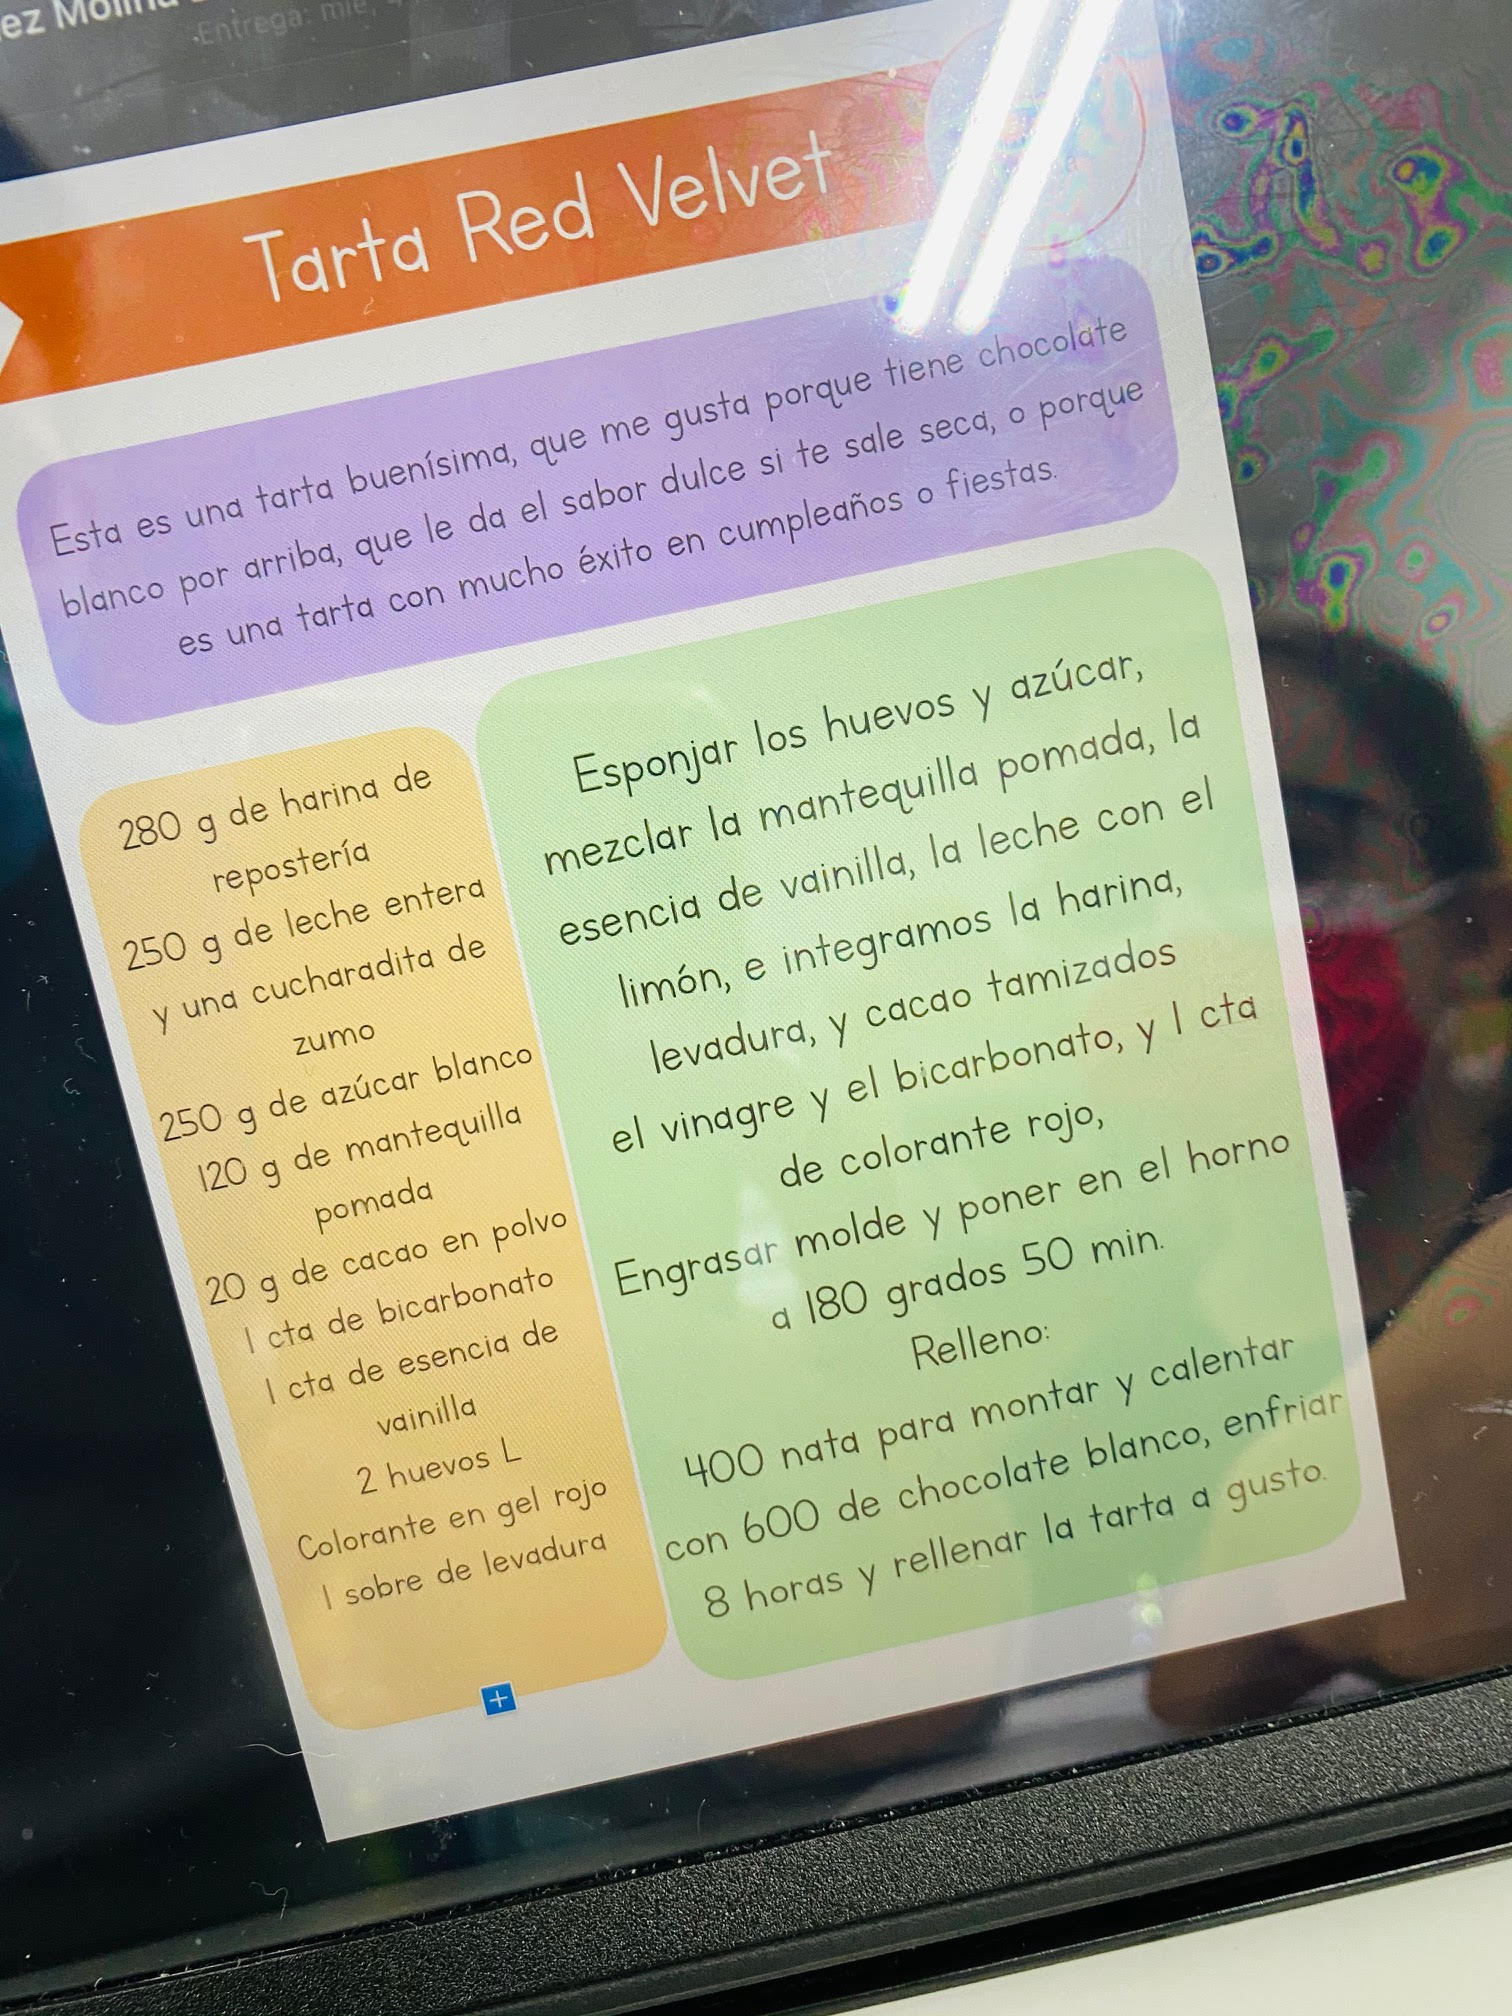 ez Molina
Entrega: mié,
Tarta Red Velvet
Esta es una tarta buenísima, que me gusta porque tiene chocolate
blanco por arriba, que le da el sabor dulce si te sale seca, o porque
es una tarta con mucho éxito en cumpleaños o fiestas.
280 g de harina de
repostería
250 g de leche entera
y una cucharadita de
zumo
250 g de azúcar blanco
120 g de mantequilla
pomada
20 g de cacao en polvo
1 cta de bicarbonato
1 cta de esencia de
vainilla
2 huevos L
Colorante en gel rojo
1 sobre de levadura
Esponjar los huevos y azúcar,
mezclar la mantequilla pomada, la
esencia de vainilla, la leche con el
limón, e integramos la harina,
levadura, y cacao tamizados
el vinagre y el bicarbonato, y 1 cta
de colorante rojo,
Engrasar molde y poner en el horno
a 180 grados 50 min.
Relleno:
400 nata para montar y calentar
con 600 de chocolate blanco, enfriar
8 horas y rellenar la tarta a gusto.